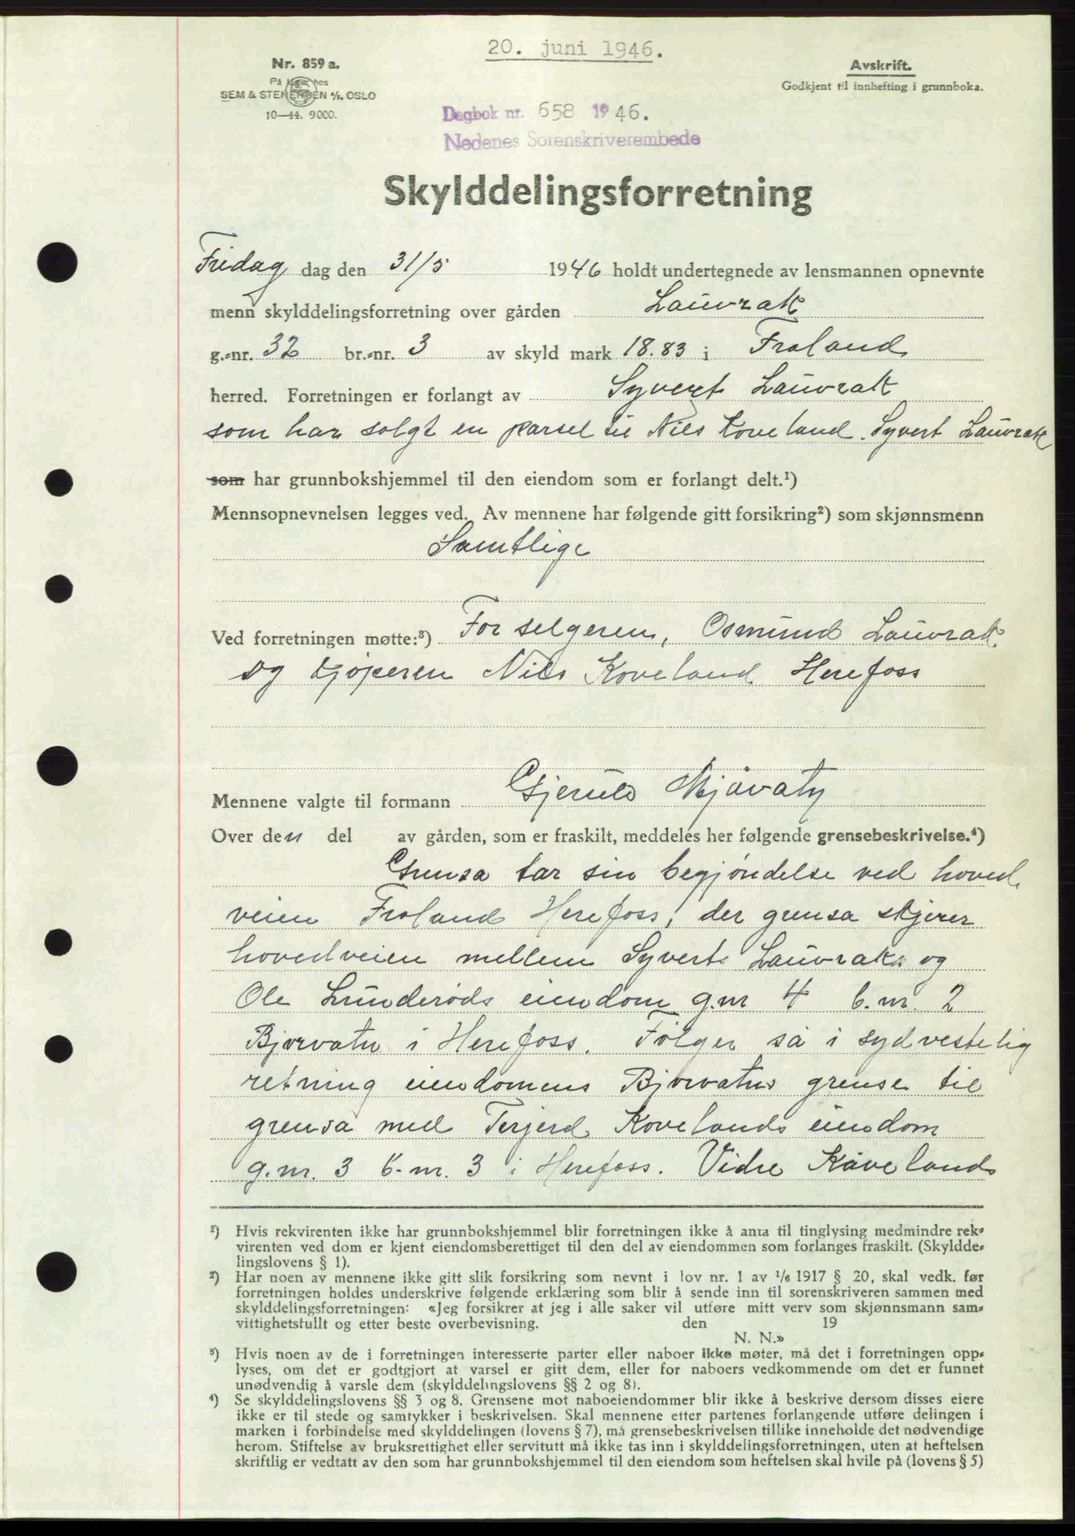 20. juni 1946.
Nr. 859 a.
SEM & STENERSEN A/S, OSLO
10—44. 9000.
Avskrift.
Godkjent til innhefting i grunnboka.
Dagbok nr. 658 1946.
Nedenes Sorenskriverembede
Skylddelingsforretning
Fredag dag den 31/5 1946 holdt undertegnede av lensmannen opnevnte
menn skylddelingsforretning over gården Lauvrak
g.-nr. 32 br.-nr. 3 av skyld mark 18.83 i Froland
herred. Forretningen er forlangt av Syvert Lauvrak
som har solgt en parsel til Nils Koveland. Syvert Lauvrak
som har grunnbokshjemmel til den eiendom som er forlangt delt.¹)
Mennsopnevnelsen legges ved. Av mennene har følgende gitt forsikring²) som skjønnsmenn
Samtlige
Ved forretningen møtte:³) For selgeren, Osmund Lauvrak
og kjøperen Nils Koveland Herefoss
Mennene valgte til formann Gjerulf
Over den del av gården, som er fraskilt, meddeles her følgende grensebeskrivelse.⁴)
Grensa tar sin begjøndelse ved hoved.
veien Froland Herefoss, der grensa skjerer
hovedveien mellem Syverts Lauvrak og
Ole Lunderøds eiendom g.nr 4 b.nr. 2
Bjorvatn i Herefoss. Følger så i sydvestelig
retning eiendomens Bjorvatns grense til
grensa med Terjerd Kovelands eiendom
g.nr. 3 b.nr. 3 i Herefoss. Vidre Kåvelands
¹) Hvis rekvirenten ikke har grunnbokshjemmel blir forretningen ikke å anta til tinglysing medmindre rek-
virenten ved dom er kjent eiendomsberettiget til den del av eiendommen som forlanges fraskilt. (Skyldde-
lingslovens § 1).
²) Har noen av mennene ikke gitt slik forsikring som nevnt i lov nr. 1 av 1/6 1917 § 20, skal vedk. før
forretningen holdes underskrive følgende erklæring som blir å sende inn til sorenskriveren sammen med
skylddelingsforretningen: «Jeg forsikrer at jeg i alle saker vil utføre mitt verv som skjønnsmann sam-
vittighetsfullt og etter beste overbevisning. den 19
N. N.»
³) Hvis noen av de i forretningen interesserte parter eller naboer ikke møter, må det i forretningen opp-
lyses, om det er godtgjort at varsel er gitt dem, eller for naboers vedkommende om det er funnet
unødvendig å varsle dem (skylddelingslovens §§ 2 og 8).
⁴) Se skylddelingslovens §§ 3 og 8. Grensene mot naboeiendommer blir ikke å beskrive dersom disses eiere
ikke er til stede og samtykker i beskrivelsen. Skal mennene etter partenes forlangende utføre delingen i
marken i forbindelse med skylddelingen (lovens § 7), må grensebeskrivelsen tillike inneholde det nødvendige
herom. Stiftelse av bruksrettighet eller servitutt må ikke tas inn i skylddelingsforretningen, uten at heftelsen
skriftlig er vedtatt av den som har grunnbokshjemmel til den eiendom som heftelsen skal hvile på (lovens § 5)